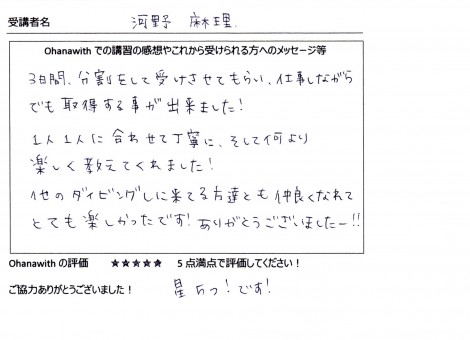 受講者名 河野 麻理
Ohanawith での講習の感想やこれから受けられる方へのメッセージ等
3日間、分割をして受けさせてもらい、仕事しながら
でも取得する事が出来ました!
1人1人に合わせて丁寧に、そして何より
楽しく教えてくれました!
他のダイビングしに来てる方達とも仲良くなれて
とても楽しかったです!ありがとうございましたー!!
Ohanawith の評価 ★★★★★ 5点満点で評価してください!
ご協力ありがとうございました! 星5つ!です!